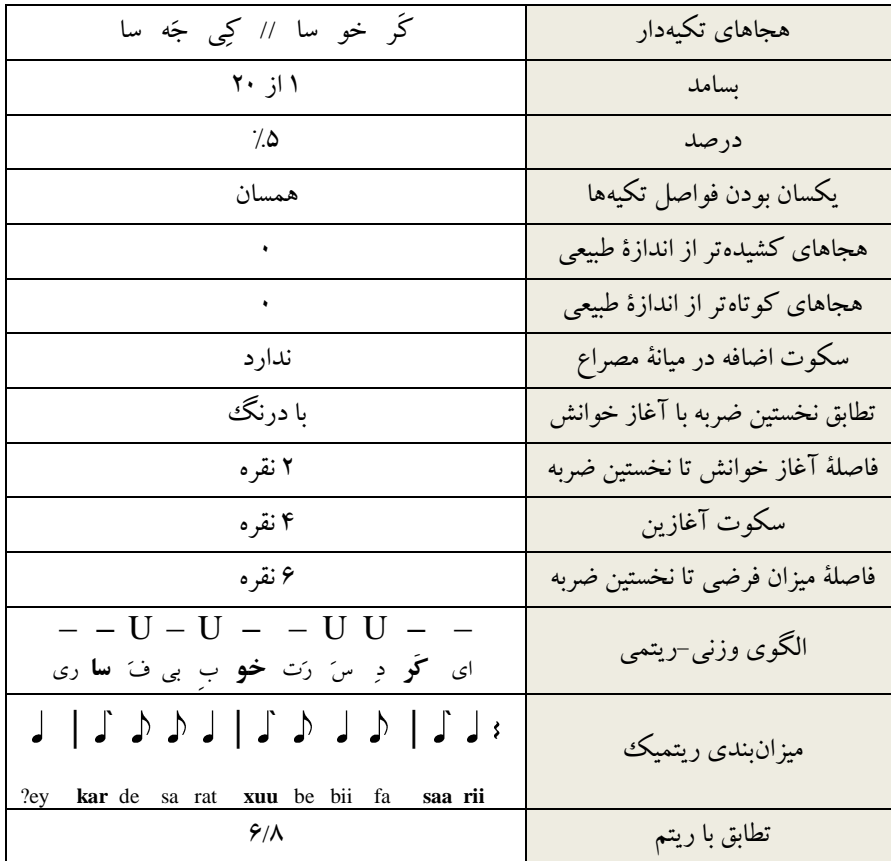 هجاهای تکیه‌دار	کَر خو سا // کِی جَه سا
بسامد	۱ از ۲۰
درصد	۵٪
یکسان بودن فواصل تکیه‌ها	همسان
هجاهای کشیده‌تر از اندازۀ طبیعی	۰
هجاهای کوتاه‌تر از اندازۀ طبیعی	۰
سکوت اضافه در میانۀ مصراع	ندارد
تطابق نخستین ضربه با آغاز خوانش	با درنگ
فاصلۀ آغاز خوانش تا نخستین ضربه	۲ نقره
سکوت آغازین	۴ نقره
فاصلۀ میزان فرضی تا نخستین ضربه	۶ نقره
الگوی وزنی-ریتمی
– – U – U – – U U – –
ای کَر دِ سَ رَت خو بِ بی فَ سا ری
میزان‌بندی ریتمیک
?ey kar de sa rat xuu be bii fa saa rii
تطابق با ریتم	۶/۸